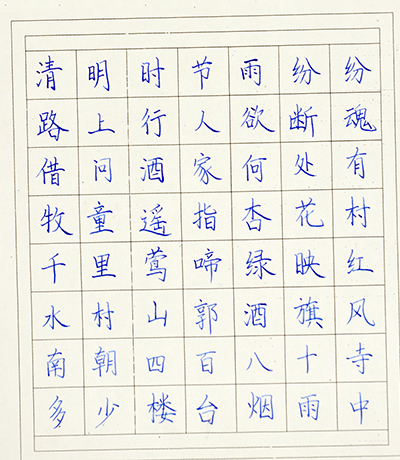 清明时节雨纷纷
路上行人欲断魂
借问酒家何处有
牧童遥指杏花村
千里莺啼绿映红
水村山郭酒旗风
南朝四百八十寺
多少楼台烟雨中